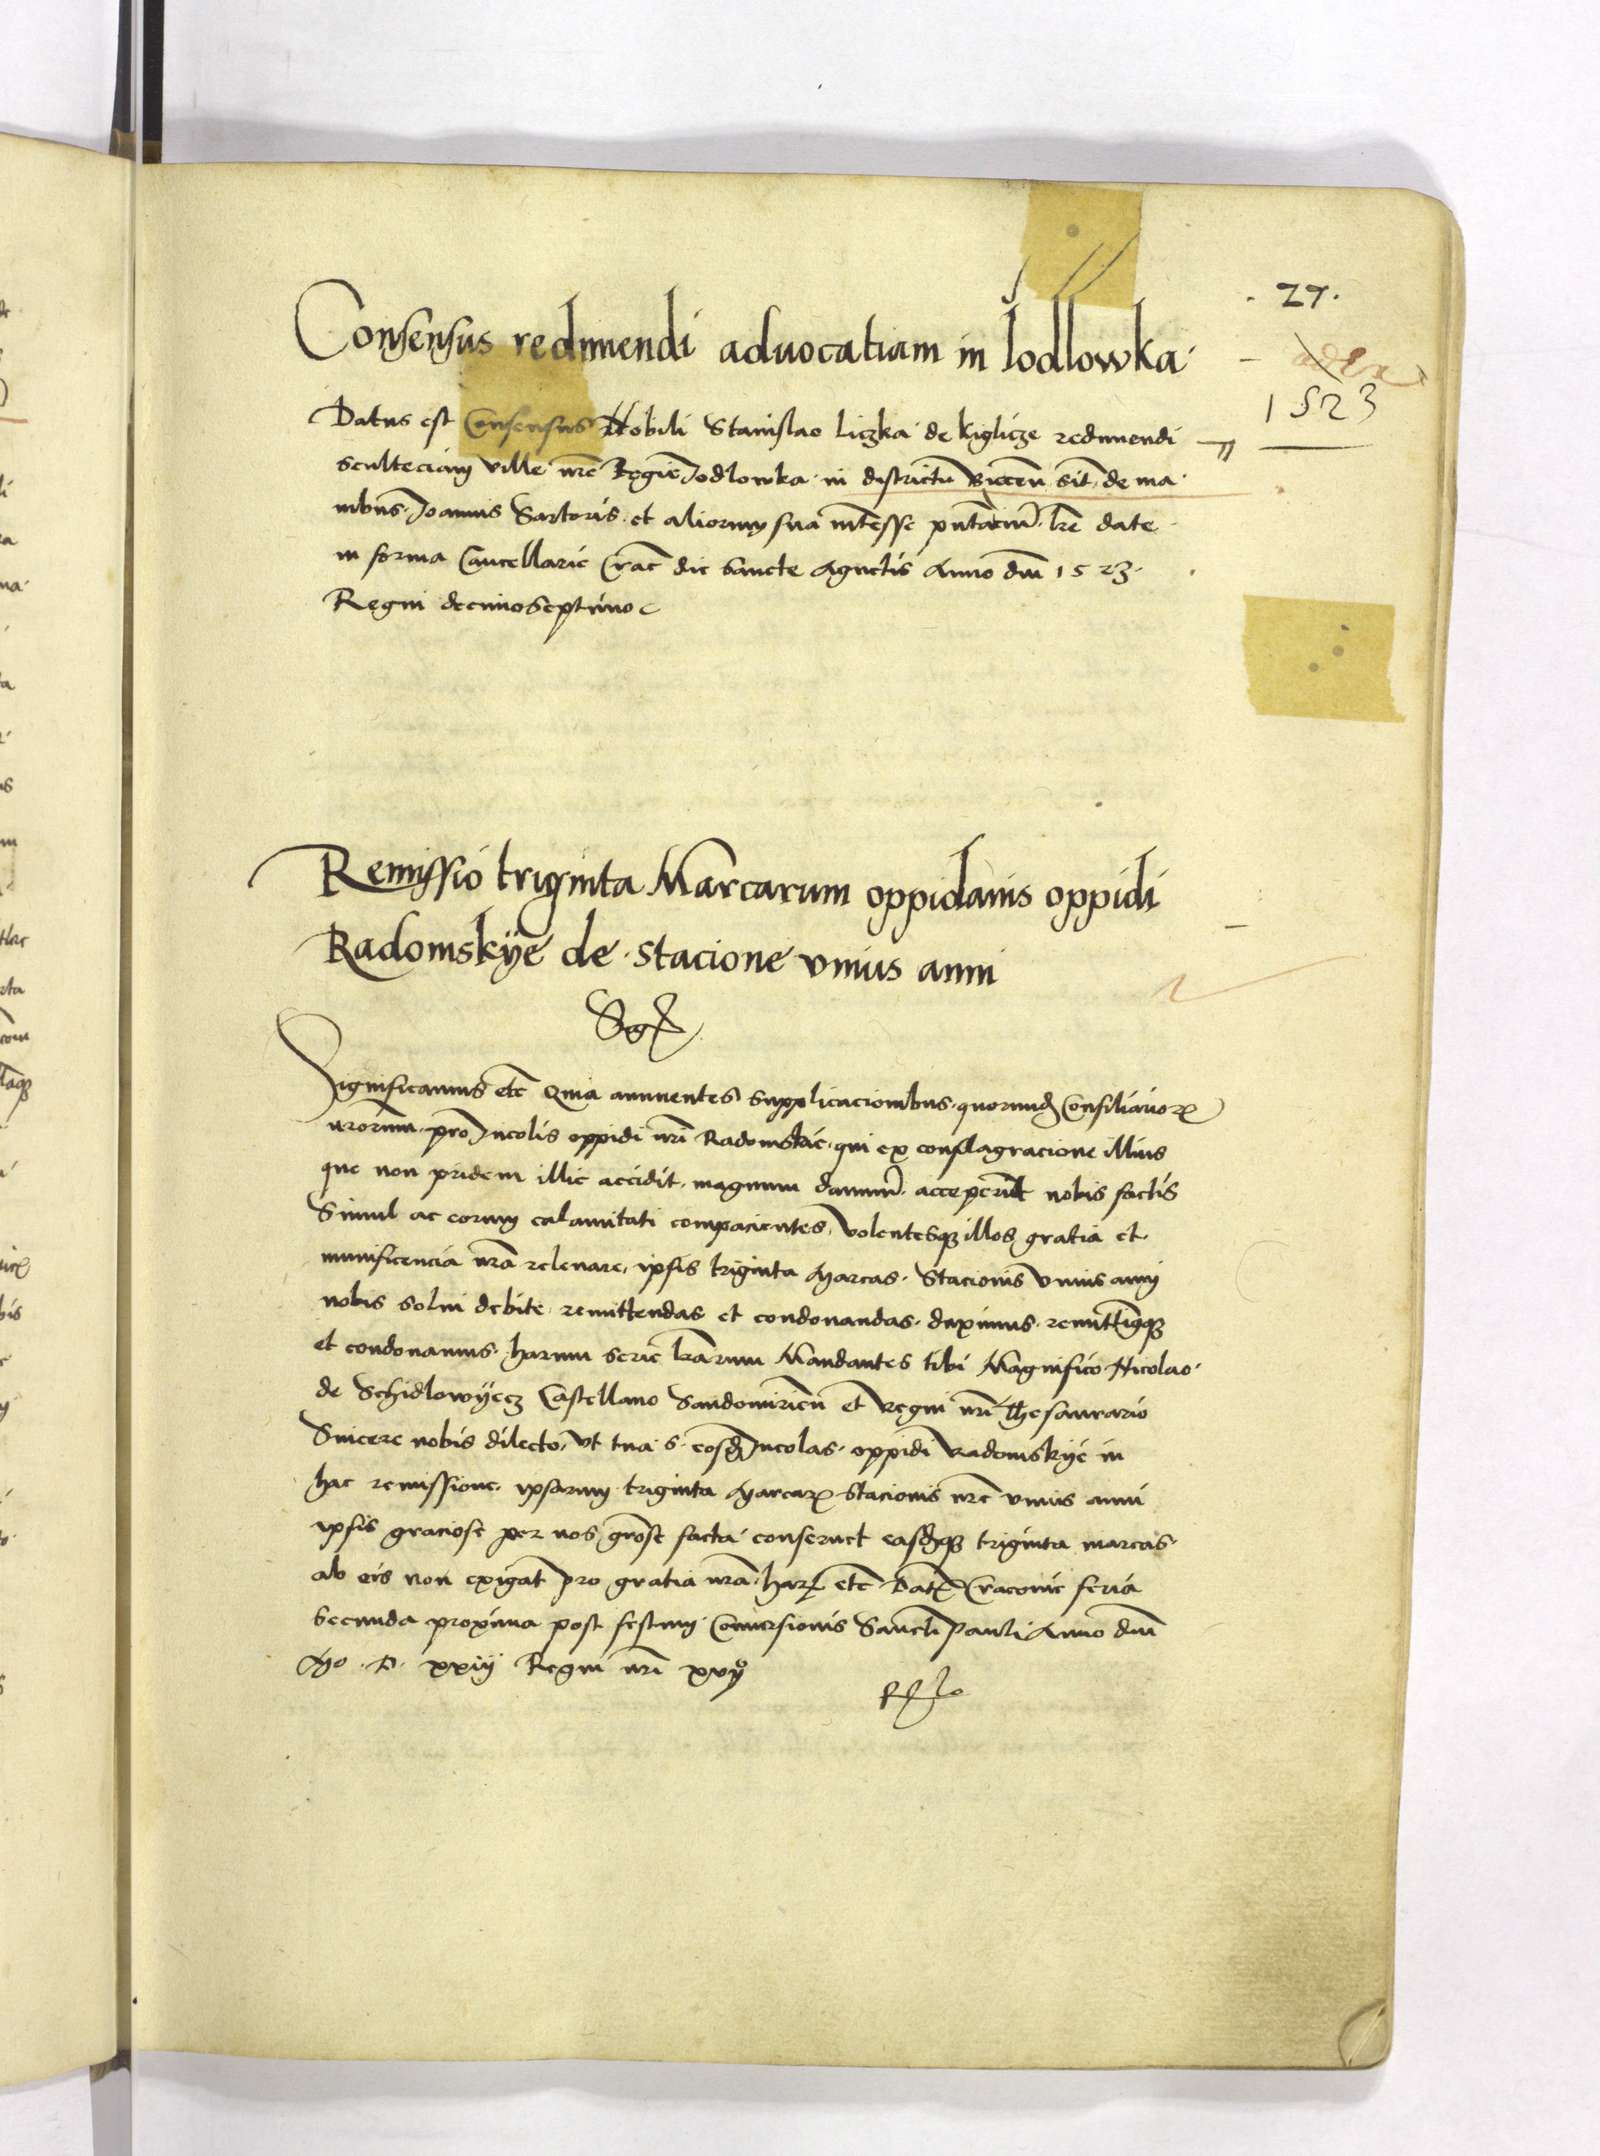 · 27 ·
1523
Consensus redimendi aduocatiam in Iodlowka·
Datus est Consensus Nobili Stanislao Liczka de kiglicze redimendi
sculteciam ville nre Regie Iodlowka· in districtu Biecen sit· de ma·
nibus· Ioannis Sartoris· et aliorum sua intesse putatium· lre date·
in forma Cancellarie Crac die Sancte Agnetis Anno dni 1523·
Regni decimoseptimo
Remissio triginta Marcarum oppidanis oppidi
Radomskye de· stacione vnius anni
Sg
Significamus etc Quia annuentes supplicacionibus· quorund Consiliarior
nrorum· pro Incolis oppidi nri Radomskie· qui ex conflagracione illius
que non pridem illic accidit· magnum damnu· acceperut nobis factis
Simul ac eorum calamitati compacientes, volentesq illos gratia et
munificencia nra releuare, ipsis triginta Marcas· Stacionis vnius anni
nobis solui debite· remittendas et condonandas· duximus· remittimq
et condonamus· harum serie lrarum Mandantes tibi Magnifico Nicolao·
de Schidlowyecz Castellano Sandomirien et Regni nri Thesaurario
Sincere nobis dilecto, vt tua· s· eosd Incolas· oppidi Radomskye in
hac remissione· ipsarum triginta Marcar Stacionis nre vnius anni
ipsis graciose per nos grose facta conseruet easdq triginta marcas·
ab eis non exigat pro gratia nra· har etc· Dat Cracouie feria
secunda proxima post festum Conuersionis Sancti Pauli Anno dni
Mo· D· xxiij Regni nri xvijo